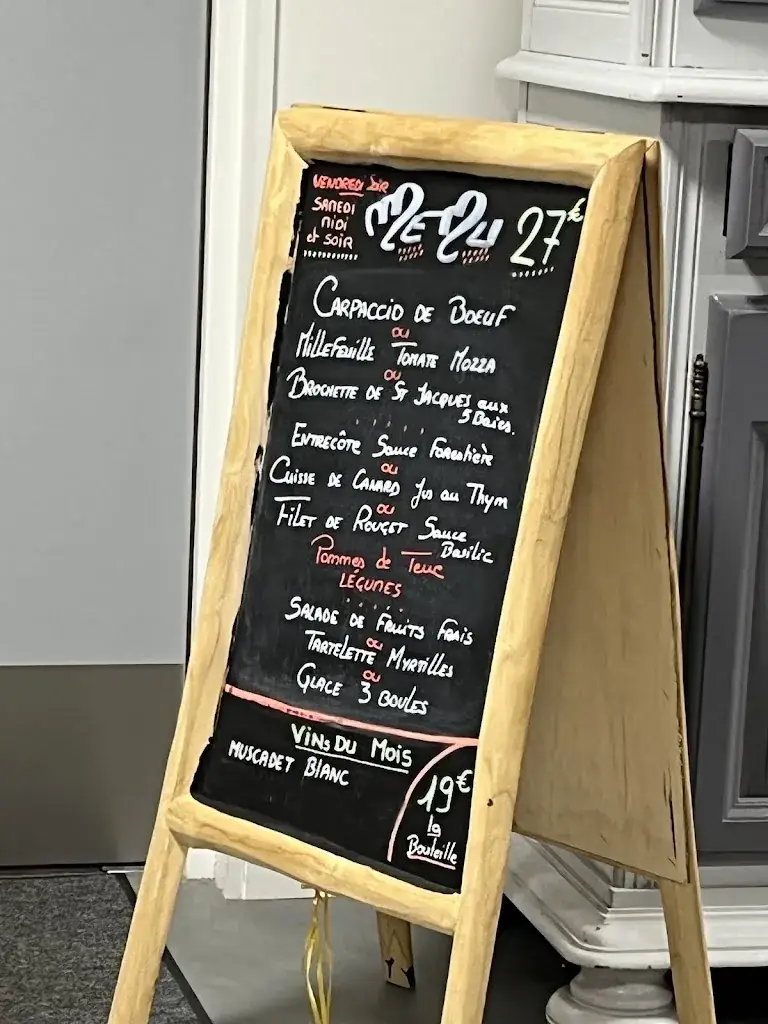 VENDREDI SOIR
SAMEDI
MIDI
et SOIR
MENU
27€
CARPACCIO DE BOEUF
ou
MILLEFEUILLE TOMATE MOZZA
ou
BROCHETTE DE ST JACQUES aux
5 Baies.
ENTRECÔTE Sauce Forestière
ou
CUISSE DE CANARD Jus au Thym
ou
FILET DE ROUGET Sauce
Basilic
Pommes de Terre
LÉGUMES
SALADE DE FRUITS FRAIS
ou
TARTELETTE MYRTILLES
ou
GLACE 3 BOULES
VINS DU MOIS
MUSCADET BLANC
19€
la
Bouteille